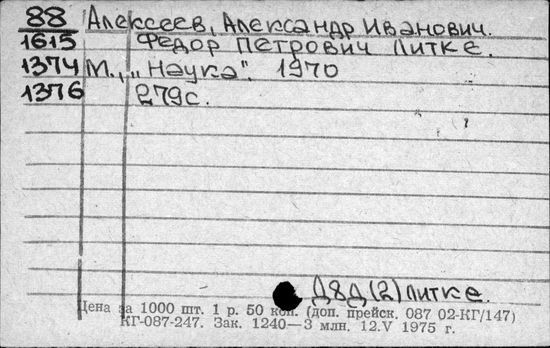 88 Алексеев, Александр Иванович.
1615 Федор Петрович Литке.
1374 М., „Наука". 1970
1376 279с.
Д8д(2)Литке.
Цена за 1000 шт. 1 р. 50 коп. (доп. прейск. 087 02-КГ/147)
КГ-087-247. Зак. 1240—3 млн. 12.V 1975 г.